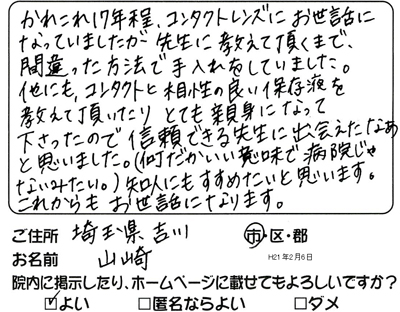 かれこれ17年程、コンタクトレンズにお世話に
なっていましたが先生に教えて頂くまで、
間違った方法で手入れをしていました。
他にも、コンタクトと相性の良い保存液を
教えて頂いたりとても親身になって
下さったので信頼できる先生に出会えたなあ
と思いました。(何だかいい意味で病院じゃ
ないみたい。)知人にもすすめたいと思います。
これからもお世話になります。
ご住所 埼玉県吉川 市・区・郡
お名前 山崎 H21年2月6日
院内に掲示したり、ホームページに載せてもよろしいですか?
☑よい □匿名ならよい □ダメ